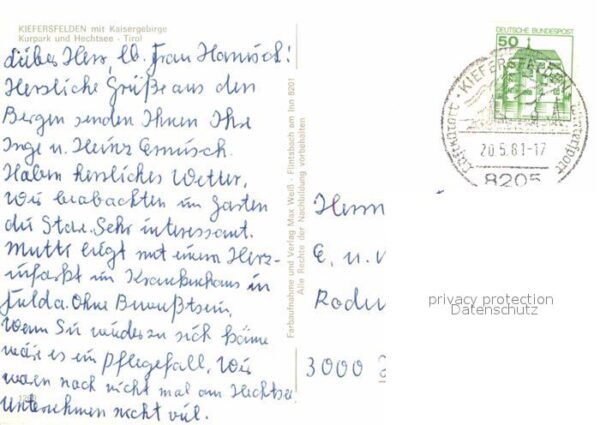 KIEFERSFELDEN mit Kaisergebirge
Kurpark und Hechtsee - Tirol
Lieber Herr, lb. Frau Hanisch!
Herzliche Grüße aus den
Bergen senden Ihnen Ihre
Inge u. Heinz
Haben herrliches Wetter,
wir beobachten im Garten
die Stare. Sehr interessant.
Mutti liegt mit einem Herz-
infarkt im Krankenhaus in
Fulda. Ohne Bewußtsein.
Wenn Sie wieder zu sich käme
wäre es ein Pflegefall. Wir
waren noch nicht mal am Hechtsee
Unternehmen nicht viel.
Farbaufnahme und Verlag Max Weiß - Flintsbach am Inn 8201
Alle Rechte der Nachbildung vorbehalten
DEUTSCHE BUNDESPOST
50
KIEFERSFELDEN
Luftkurort
Wintersport
20.5.81-17
8205
Herrn
E. u.
3000
privacy protection
Datenschutz